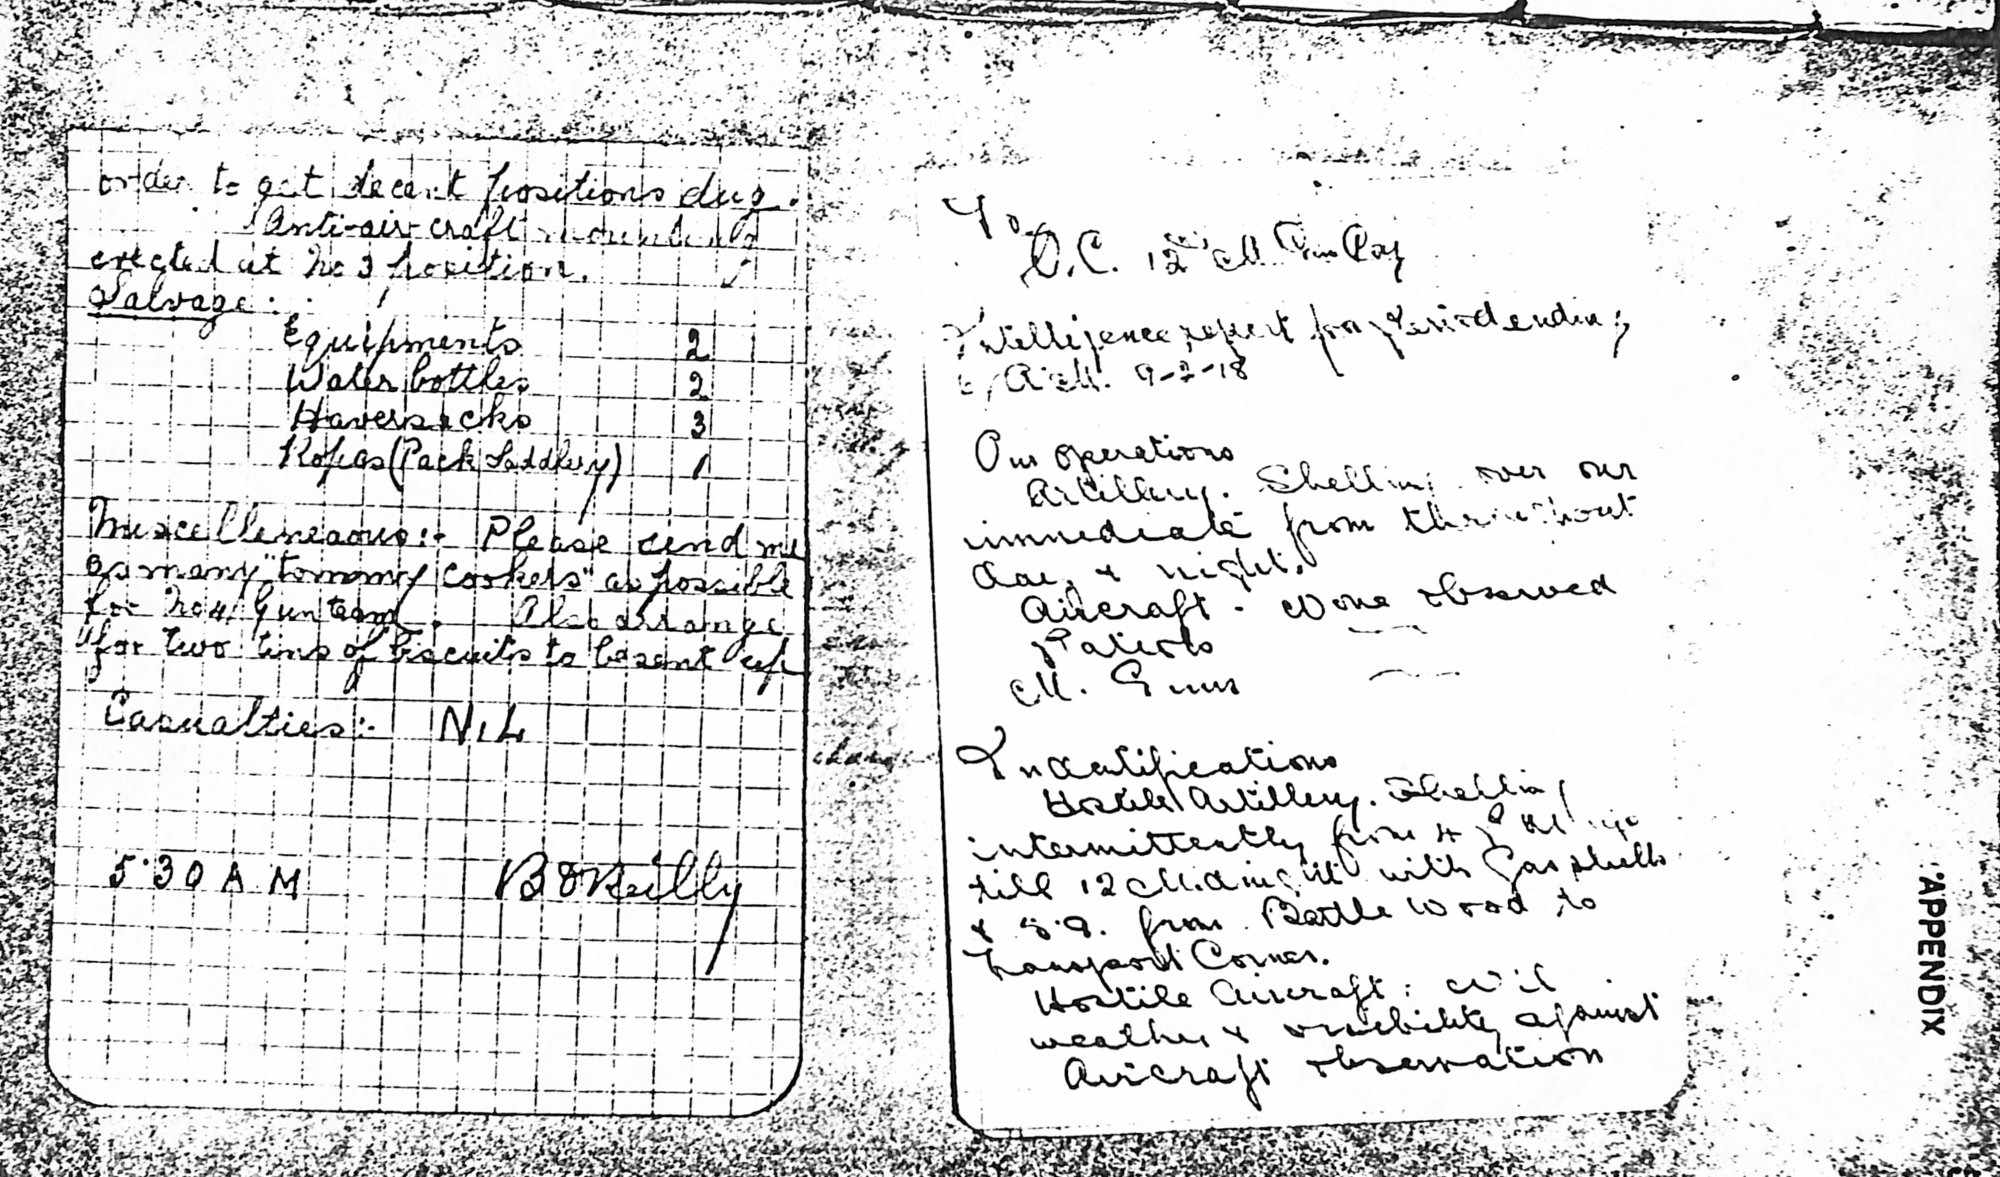 order to get decent positions dug.
Anti-air craft mounting
erected at No 3 position.
Salvage :
Equipments 2
Water bottles 2
Haversacks 3
Ropes (Pack Saddlery) 1
Miscelleneaous:- Please send me
as many "tommy cookers" as possible
for No 4 Gun team. Also arrange
for two tins of biscuits to be sent up
Casualties:- NIL
5.30 A M B O'Reilly
To
O.C. 12th M. Gun Coy
Intelligence report for period ending
6 A.M. 9-2-18
Our operations
Artillery. Shelling over our
immediate front throughout
day & night.
Aircraft. None observed
Patrols —
M. Guns —
Indentifications
Hostile Artillery. Shelling
intermittently from 4
till 12 Midnight with Gas shells
& 5.9. from Battle Wood to
Transport Corner.
Hostile Aircraft: Nil
weather & visibility against
Aircraft observation
APPENDIX